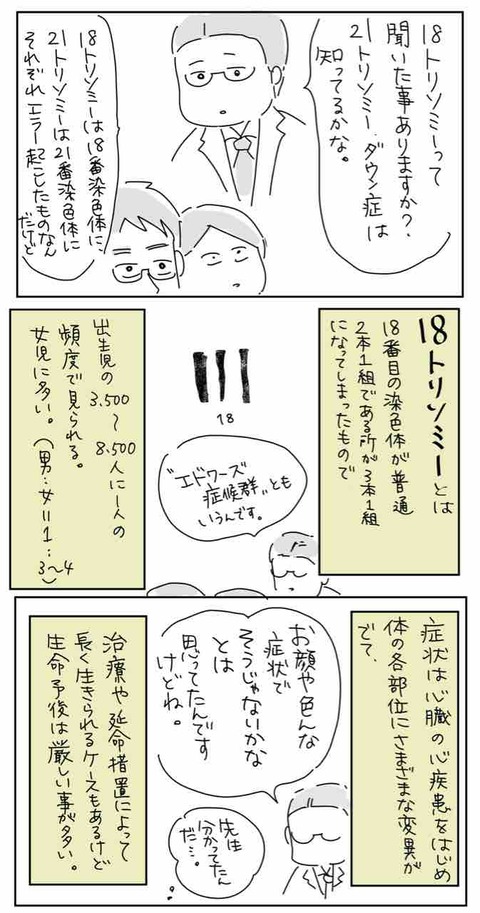 18トリソミーって
聞いた事ありますか?
21トリソミー、ダウン症は
知ってるかな。
18トリソミーは18番染色体に、
21トリソミーは21番染色体に
それぞれエラー起こしたものなん
だけど
18トリソミーとは
18番目の染色体が普通
2本1組である所が3本1組
になってしまったもので
18
"エドワーズ
症候群"とも
いうんです。
出生児の
3.500
〜
8.500
人に1人の
頻度で見られる。
女児に多い。(男:女=1:3〜4)
症状は心臓の心疾患をはじめ
体の各部位にさまざまな変異が
でて、
お顔や色んな
症状で
そうじゃないかな
とは
思ってたんです
けどね。
先生
分かってたん
だ…。
治療や延命措置によって
長く生きられるケースもあるけど
生命予後は厳しい事が多い。